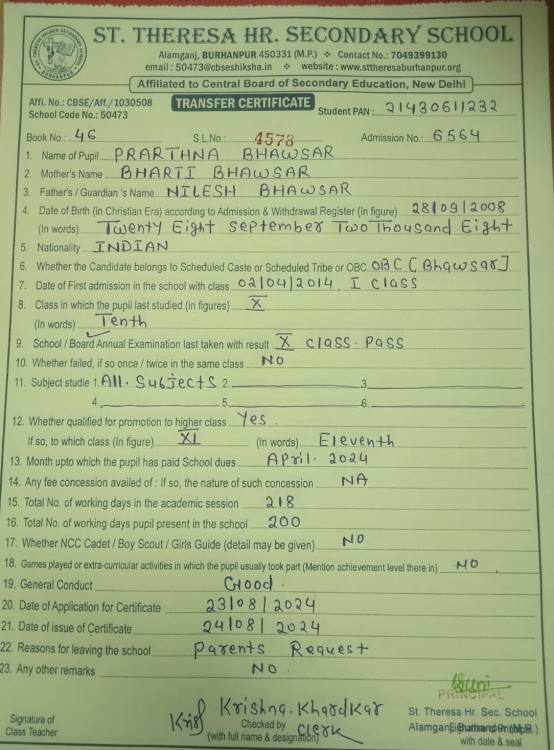 ST. THERESA HR. SECONDARY SCHOOL
Alamganj, BURHANPUR 450331 (M.P.) ❖ Contact No.: 7049399130
email : 50473@cbseshiksha.in ❖ website : www.sttheresaburhanpur.org
Affiliated to Central Board of Secondary Education, New Delhi
Affi. No.: CBSE/Aff./1030508
TRANSFER CERTIFICATE
Student PAN : 21430611232
School Code No.: 50473
Book No.: 46 S.L.No.: 4578 Admission No.: 6564
1. Name of Pupil PRARTHNA BHAWSAR
2. Mother's Name BHARTI BHAWSAR
3. Father's / Guardian 's Name NILESH BHAWSAR
4. Date of Birth (in Christian Era) according to Admission & Withdrawal Register (In figure) 28/09/2008
(In words) Twenty Eight September Two Thousand Eight
5. Nationality INDIAN
6. Whether the Candidate belongs to Scheduled Caste or Scheduled Tribe or OBC OBC [Bhawsar]
7. Date of First admission in the school with class 02/04/2014 I class
8. Class in which the pupil last studied (in figures) X
(In words) Tenth
9. School / Board Annual Examination last taken with result X class. Pass
10. Whether failed, if so once / twice in the same class NO
11. Subject studie 1. All. Subjects 2. 3.
4. 5. 6.
12. Whether qualified for promotion to higher class Yes.
If so, to which class (In figure) XI (In words) Eleventh
13. Month upto which the pupil has paid School dues April. 2024
14. Any fee concession availed of : If so, the nature of such concession NA
15. Total No. of working days in the academic session 218
16. Total No. of working days pupil present in the school 200
17. Whether NCC Cadet / Boy Scout / Girls Guide (detail may be given) NO
18. Games played or extra-curricular activities in which the pupil usually took part (Mention achievement level there in) NO
19. General Conduct Good.
20. Date of Application for Certificate 23/08/2024
21. Date of issue of Certificate 24/08/2024
22. Reasons for leaving the school Parents Request
23. Any other remarks NO.
PRINCIPAL
St. Theresa Hr. Sec. School
Krishna. Khardkar
Signature of
Class Teacher
Checked by
clerk
(with full name & designation)
Alamganj, Burhanpur (M.P.)
Signature of Principal
with date & seal